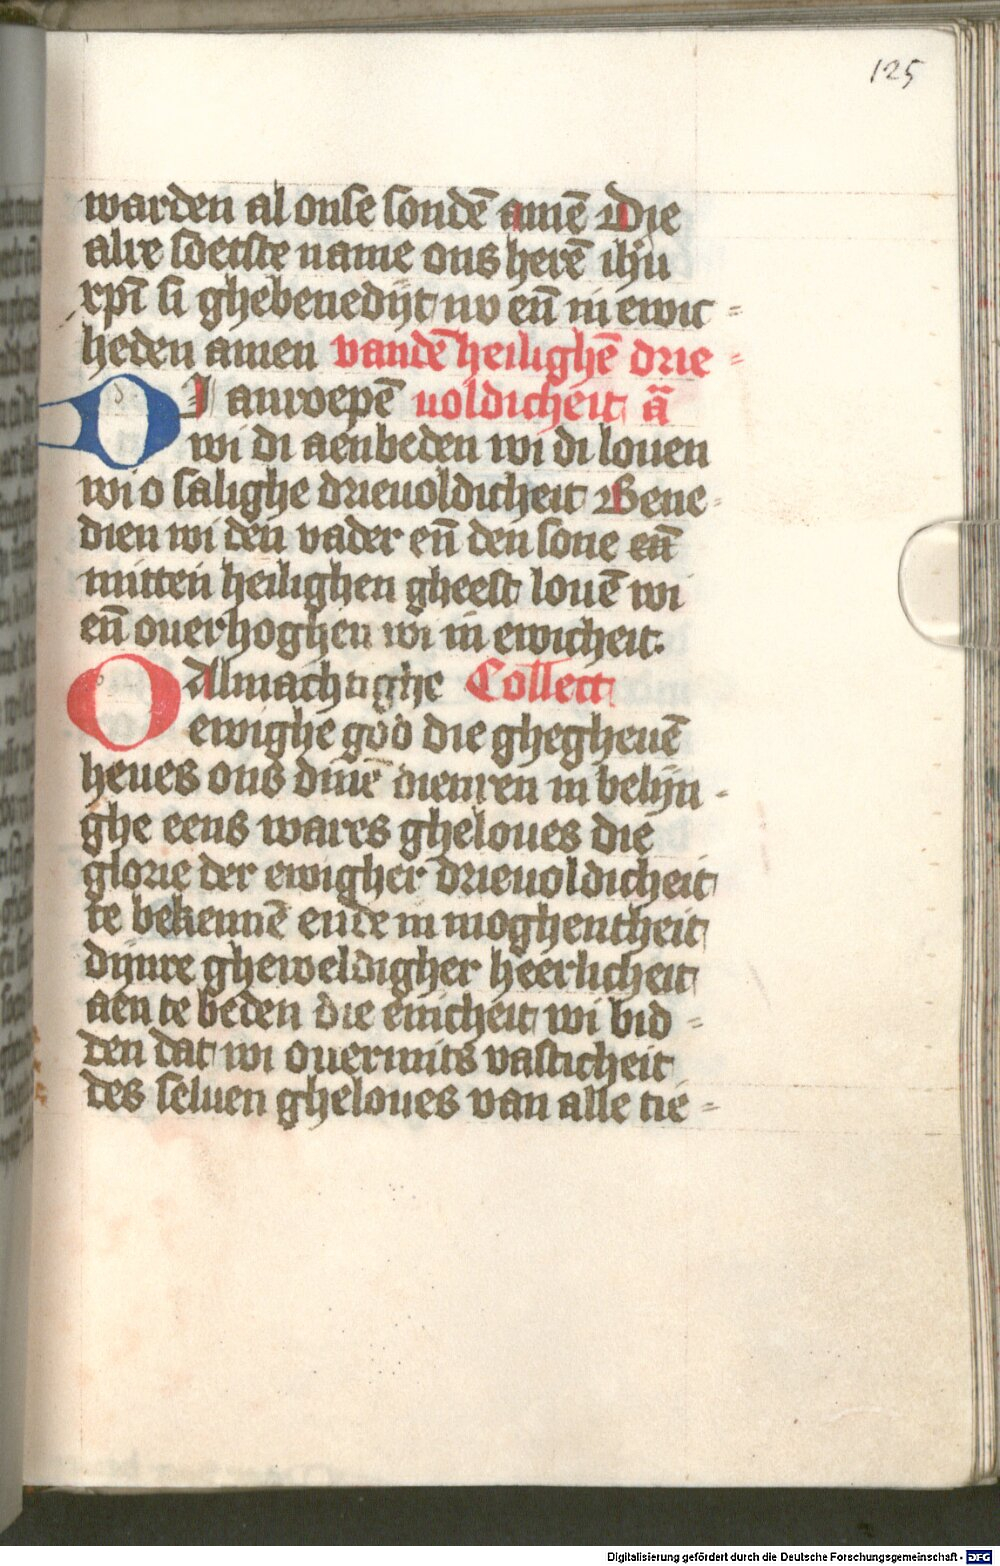 125
warden al onse sondē amē Die
alre soetste name ons herē ihū
xpī si ghebenedijt nv eñ in ewic-
heden amen vandē heilighē drie-
DI anroepē uoldicheit ā
wi di aenbeden wi di louen
wi o salighe drieuoldicheit Bene-
dien wi den vader eñ den sone eñ
mitten heilighen gheest louē wi
eñ ouerhoghen wi in ewicheit.
O Almachtighe Collect
ewighe god die ghegheuē
heues ons dinē dienren in belijn-
ghe eens wares gheloues die
glorie der ewigher drieuoldicheit
te bekennē ende in moghentheit
dijnre gheweldigher heerlicheit
aen te beden die enicheit wi bid-
den dat wi ouermits vasticheit
des seluen gheloues van alle tie-
Digitalisierung gefördert durch die Deutsche Forschungsgemeinschaft - DFG